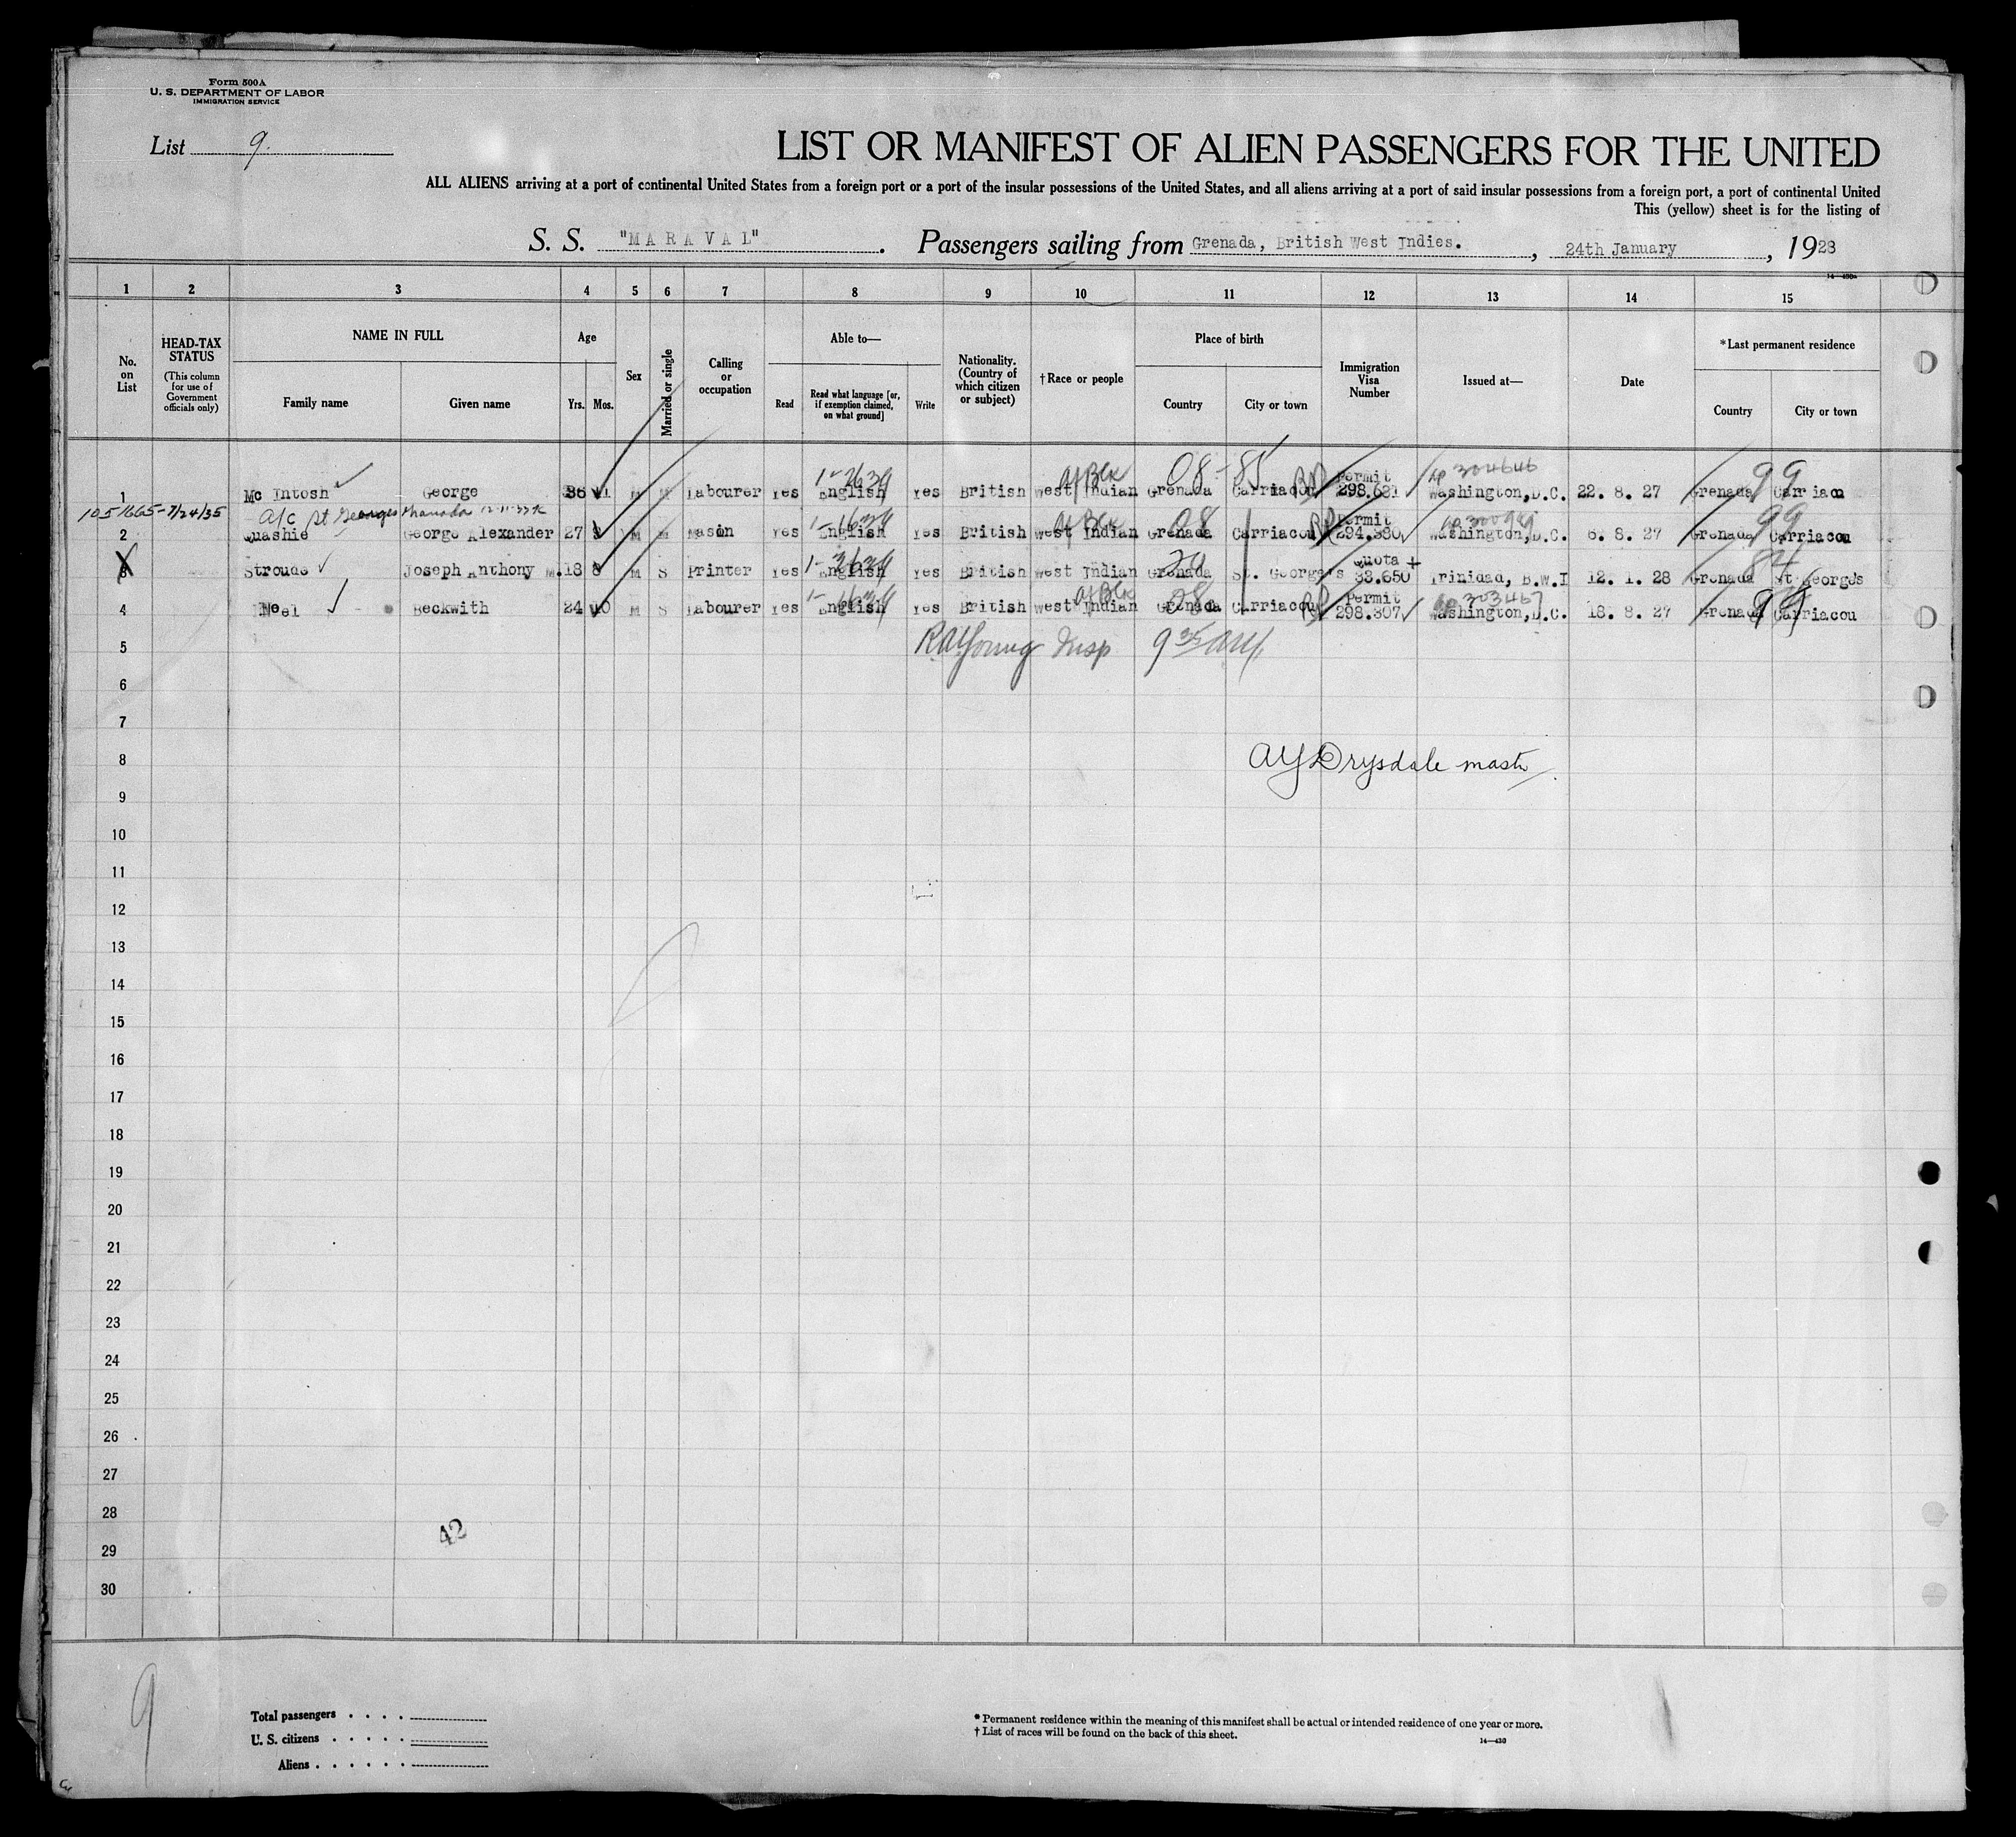 Form 500A
U. S. DEPARTMENT OF LABOR
IMMIGRATION SERVICE
List 9.
LIST OR MANIFEST OF ALIEN PASSENGERS FOR THE UNITED
ALL ALIENS arriving at a port of continental United States from a foreign port or a port of the insular possessions of the United States, and all aliens arriving at a port of said insular possessions from a foreign port, a port of continental United
This (yellow) sheet is for the listing of
S. S. "MARAVAL". Passengers sailing from Grenada, British West Indies., 24th January, 1928
1 2 3 4 5 6 7 8 9 10 11 12 13 14 15
No. on List
HEAD-TAX STATUS
(This column for use of Government officials only)
NAME IN FULL
Family name Given name
Age
Yrs. Mos.
Sex
Married or single
Calling or occupation
Able to—
Read
Read what language [or, if exemption claimed, on what ground]
Write
Nationality. (Country of which citizen or subject)
† Race or people
Place of birth
Country City or town
Immigration Visa Number
Issued at—
Date
* Last permanent residence
Country City or town
1 Mc Intosh George 36 11 M M Labourer Yes English Yes British West Indian Grenada Carriacou Permit 298.631 Washington, D.C. 22. 8. 27 Grenada Carriacou
304646
Af Blk
08-85
99
1051665-7/24/35
2 Quashie George Alexander 27 M M Mason Yes English Yes British West Indian Grenada Carriacou Permit 294.380 Washington, D.C. 6. 8. 27 Grenada Carriacou
08
99
3 Stroude Joseph Anthony M. 18 8 M S Printer Yes English Yes British West Indian Grenada St. George's Quota 33.650 Trinidad, B.W.I 12. 1. 28 Grenada St George's
84
4 Noel Beckwith 24 10 M S Labourer Yes English Yes British West Indian Grenada Carriacou Permit 298.307 Washington, D.C. 18. 8. 27 Grenada Carriacou
303467
08
99
5 RA Young Insp 9 35 AM
6
7
8 AY Drysdale master
9
10
11
12
13
14
15
16
17
18
19
20
21
22
23
24
25
26
27
28
42
29
30
9
Total passengers
U. S. citizens
Aliens
* Permanent residence within the meaning of this manifest shall be actual or intended residence of one year or more.
† List of races will be found on the back of this sheet.
14—430